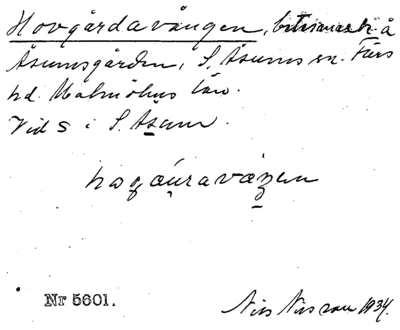 Hovgårdavången, betesmark å
Åsumsgården, S. Åsums sn. Färs
hd. Malmöhus län.
Vid S i S. Åsum.
Nr 5601.
Nils Nilsson 1934.